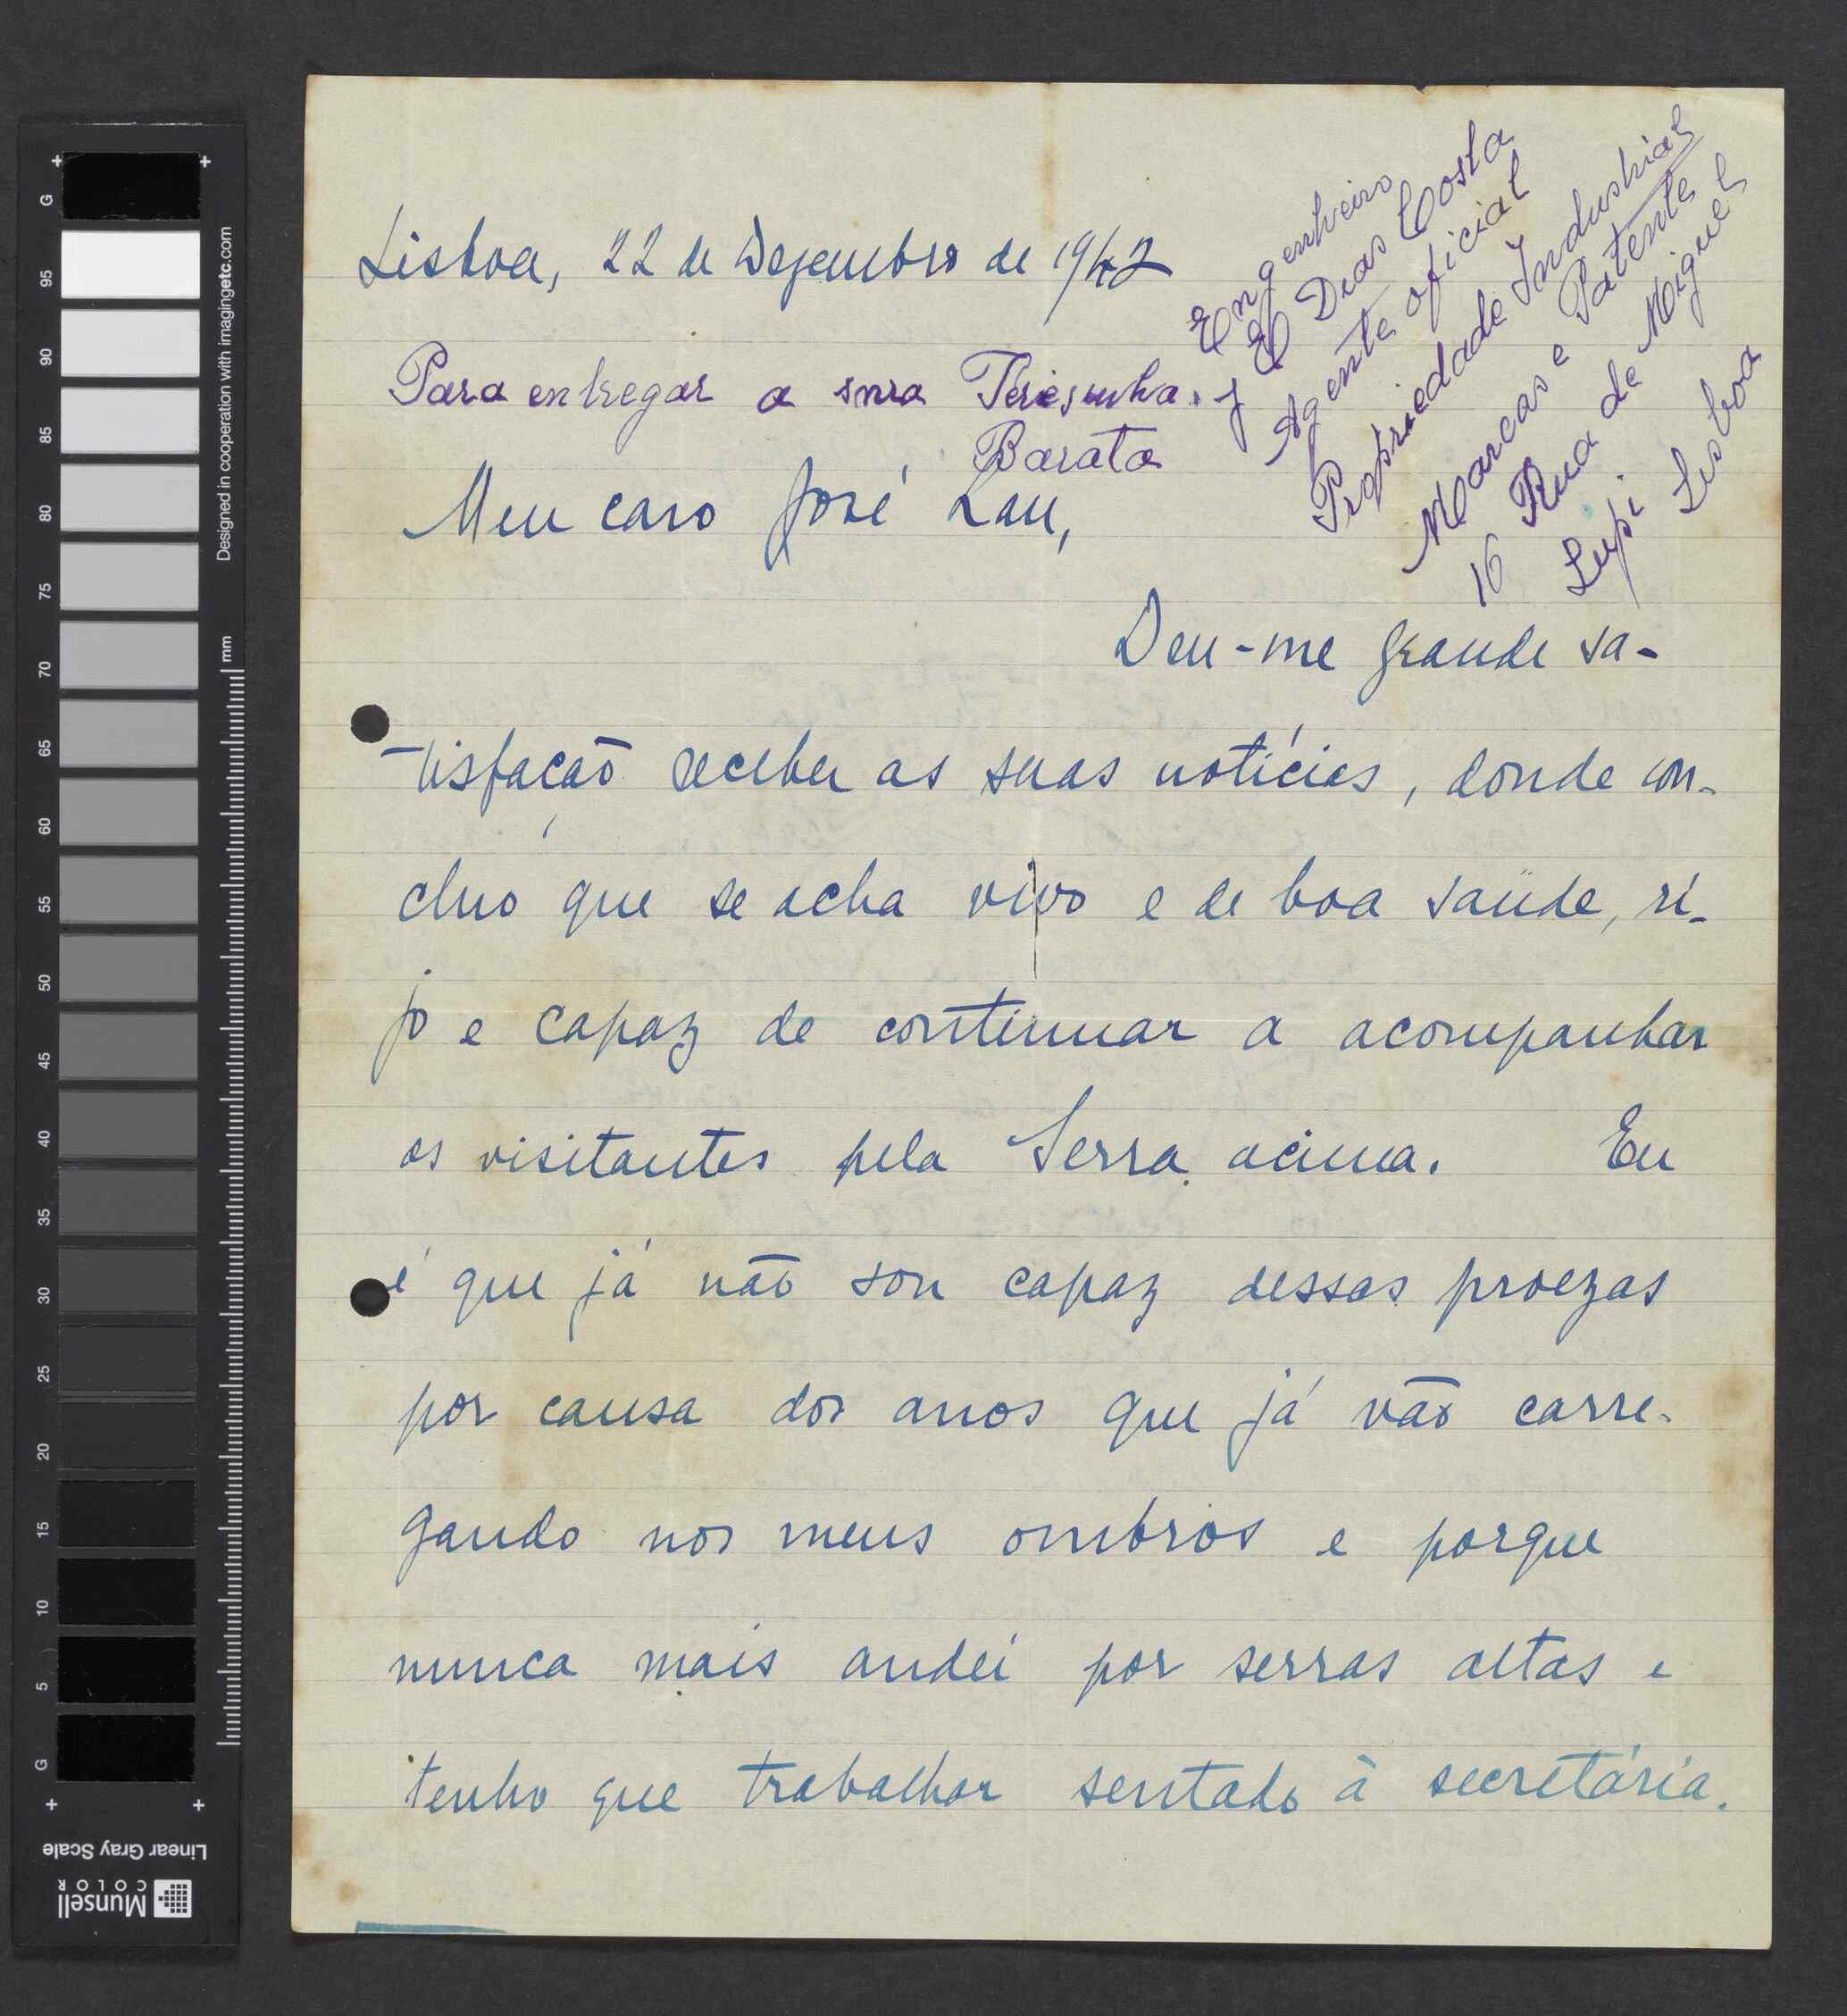 Lisboa, 22 de Dezembro de 1942
Para entregar a snra Teriesinha
Barata
Engenheiro
J E Dias Costa
Agente oficial
Propriedade Industrial
Marcas e Patentes
16 Rua de Miguel
Lupi. Lisboa
Meu caro José Lau,
Deu-me grande sa-
tisfação receber as suas notícias, donde con-
cluo que se acha vivo e de boa saüde, rí-
jo e capaz de continuar a acompanhar
os visitantes pela Serra acima. Eu
é que já não sou capaz dessas proezas
por causa dos anos que já vão carre-
gando nos meus ombros e porque
nunca mais andei por serras altas e
tenho que trabalhar sentado à secretária.
G
95
90
85
80
75
70
65
60
55
50
45
40
35
30
25
20
15
10
5
G
mm
Designed in cooperation with imagingetc.com
Linear Gray Scale
Munsell
COLOR